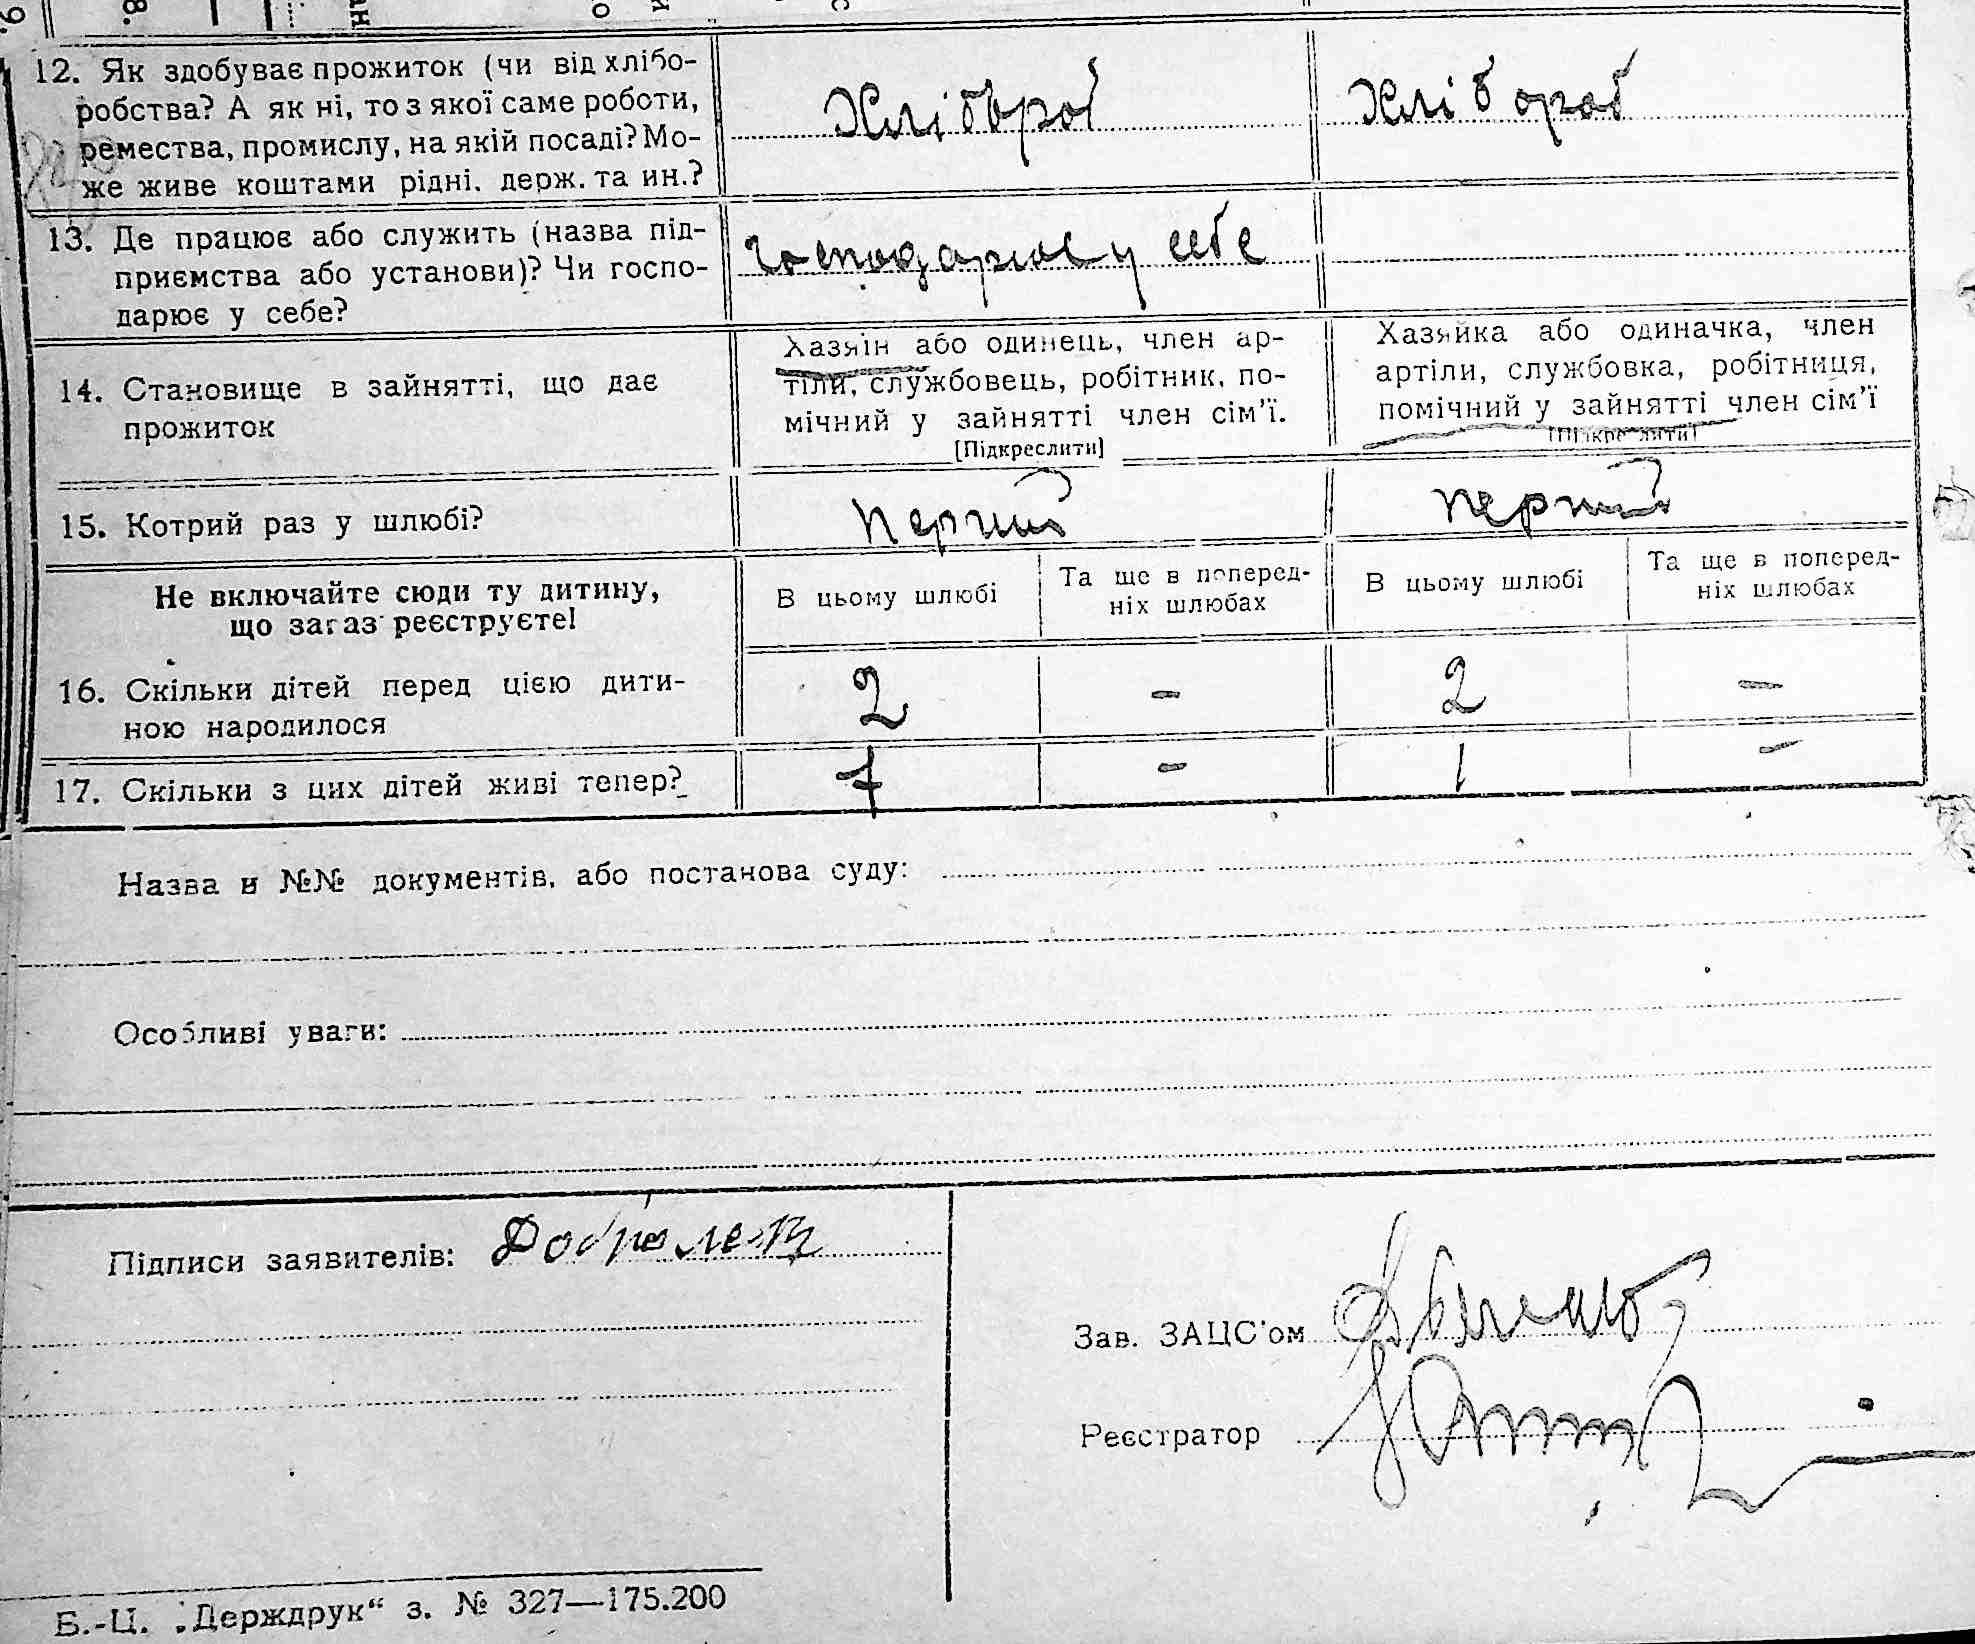 12. Як здобуває прожиток (чи від хлібо-
робства? А як ні, то з якої саме роботи,
ремества, промислу, на якій посаді? Мо-
же живе коштами рідні. держ. та ин.?
Хлібороб
Хлібороб
13. Де працює або служить (назва під-
приємства або установи)? Чи госпо-
дарює у себе?
господарює у себе
14. Становище в зайнятті, що дає
прожиток
Хазяін або одинець, член ар-
тіли, службовець, робітник, по-
мічний у зайнятті член сім'ї.
[Підкреслити]
Хазяйка або одиначка, член
артіли, службовка, робітниця,
помічний у зайнятті член сім'ї
[Підкреслити]
15. Котрий раз у шлюбі?
перший
перший
Не включайте сюди ту дитину,
що зараз реєструєте!
В цьому шлюбі
Та ще в поперед-
ніх шлюбах
В цьому шлюбі
Та ще в поперед-
ніх шлюбах
16. Скільки дітей перед цією дити-
ною народилося
2 - 2 -
17. Скільки з цих дітей живі тепер?
1 - 1 -
Назва и №№ документів, або постанова суду:
Особливі уваги:
Підписи заявителів:
Зав. ЗАЦС'ом
Реєстратор
Б.-Ц. „Держдрук“ з. № 327—175.200